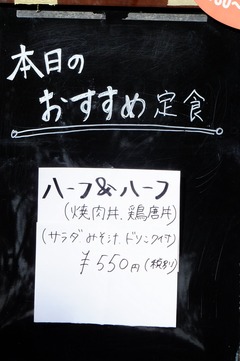 本日の
おすすめ定食
ハーフ&ハーフ
(焼肉丼.鶏唐丼)
(サラダ みそ汁.ドリンク付)
¥550円(税別)